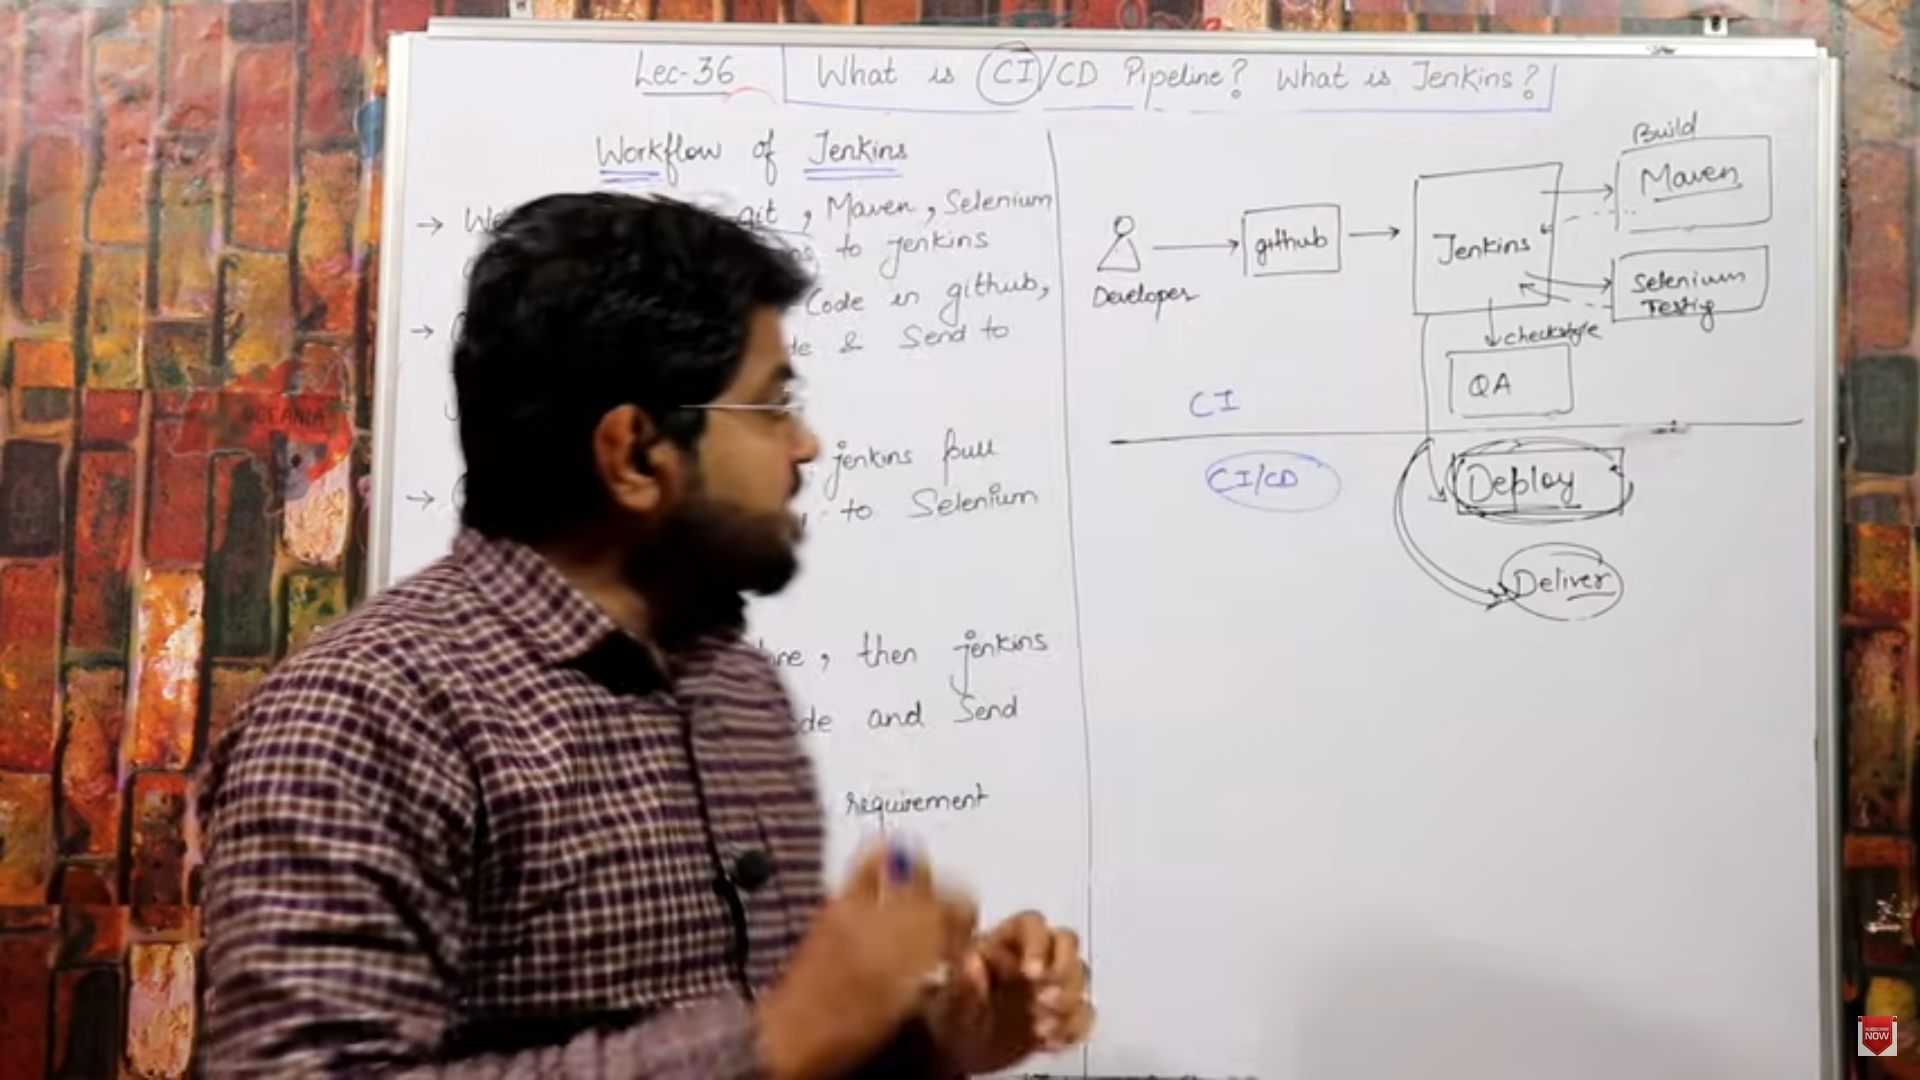 Lec-36 What is CI/CD Pipeline? What is Jenkins?
Workflow of Jenkins
→ We git, Maven, Selenium
to jenkins
→ Code in github,
& Send to
jenkins pull
→ to Selenium
, then jenkins
and Send
requirement
Developer
github
Jenkins
Build
Maven
Selenium
Testig
checkstyle
QA
CI
CI/CD
Deploy
Deliver
OCEANIA
SUBSCRIBE
NOW